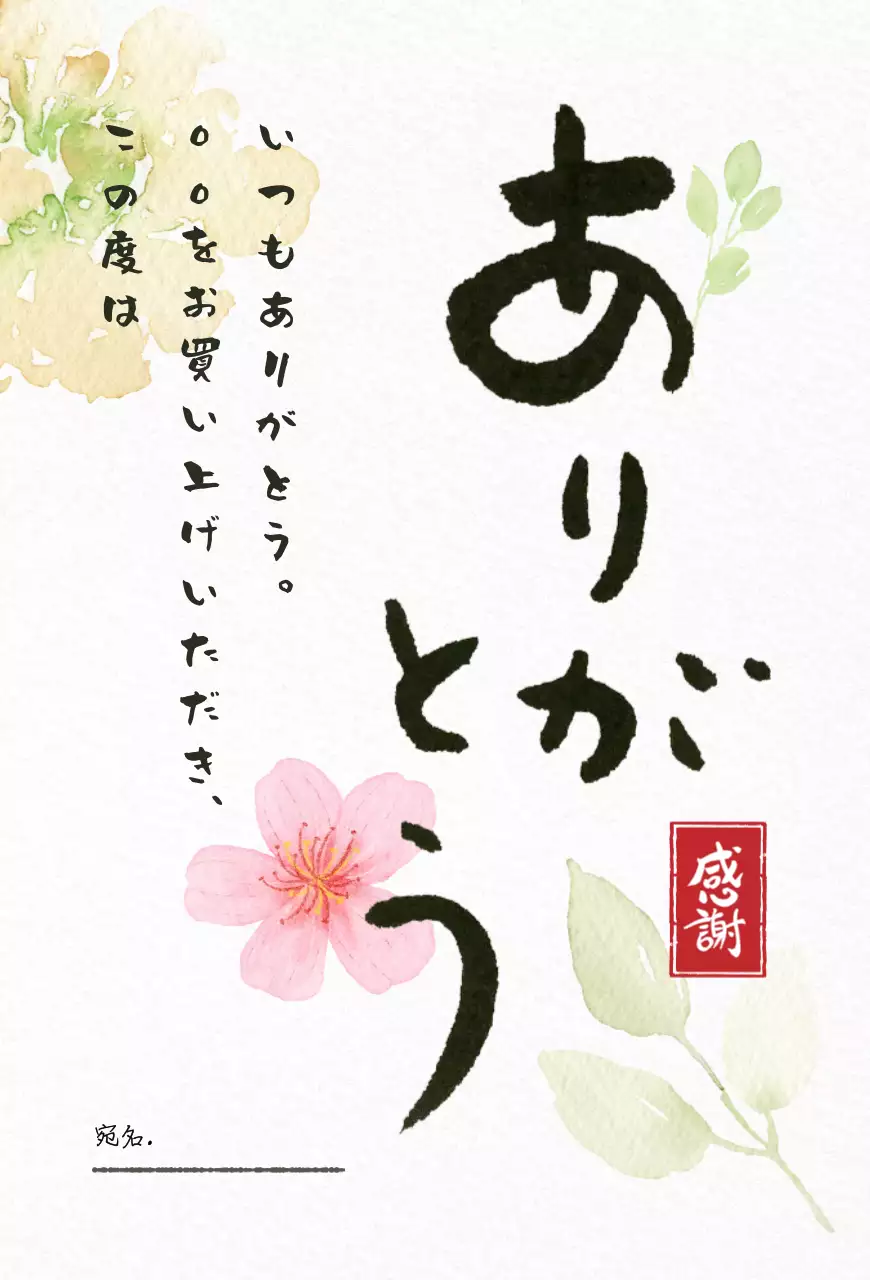 ありが
とう
感謝
いつもありがとう。
○○をお買い上げいただき、
この度は
宛名.